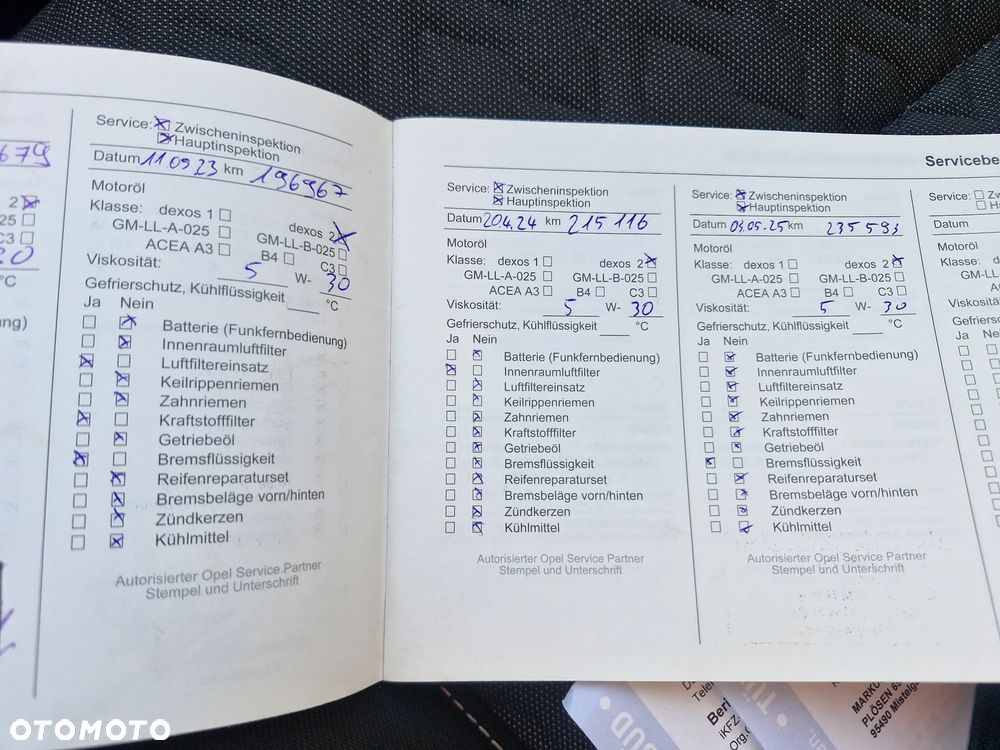 679
2
025
C3
30
°C
ng)
Service: Zwischeninspektion
Hauptinspektion
Datum 11 09 23 km 196967
Motoröl
Klasse: dexos 1 dexos 2
GM-LL-A-025 GM-LL-B-025
ACEA A3 B4 C3
Viskosität: 5 W- 30
Gefrierschutz, Kühlflüssigkeit °C
Ja Nein
Batterie (Funkfernbedienung)
Innenraumluftfilter
Luftfiltereinsatz
Keilrippenriemen
Zahnriemen
Kraftstofffilter
Getriebeöl
Bremsflüssigkeit
Reifenreparaturset
Bremsbeläge vorn/hinten
Zündkerzen
Kühlmittel
Autorisierter Opel Service Partner
Stempel und Unterschrift
Servicebe
Service: Zwischeninspektion
Hauptinspektion
Datum 20.4.24 km 215 116
Motoröl
Klasse: dexos 1 dexos 2
GM-LL-A-025 GM-LL-B-025
ACEA A3 B4 C3
Viskosität: 5 W- 30
Gefrierschutz, Kühlflüssigkeit °C
Ja Nein
Batterie (Funkfernbedienung)
Innenraumluftfilter
Luftfiltereinsatz
Keilrippenriemen
Zahnriemen
Kraftstofffilter
Getriebeöl
Bremsflüssigkeit
Reifenreparaturset
Bremsbeläge vorn/hinten
Zündkerzen
Kühlmittel
Autorisierter Opel Service Partner
Stempel und Unterschrift
Service: Zwischeninspektion
Hauptinspektion
Datum 03.05.25 km 235 593
Motoröl
Klasse: dexos 1 dexos 2
GM-LL-A-025 GM-LL-B-025
ACEA A3 B4 C3
Viskosität: 5 W- 30
Gefrierschutz, Kühlflüssigkeit °C
Ja Nein
Batterie (Funkfernbedienung)
Innenraumluftfilter
Luftfiltereinsatz
Keilrippenriemen
Zahnriemen
Kraftstofffilter
Getriebeöl
Bremsflüssigkeit
Reifenreparaturset
Bremsbeläge vorn/hinten
Zündkerzen
Kühlmittel
Autorisierter Opel Service Partner
Stempel und Unterschrift
Service: Zw
Ha
Datum
Motoröl
Klasse: d
GM-LL
ACE
Viskosität
Gefriersc
Ja Ne
Telef
Beri
iKFZ
Org.
SÜD
TÜ
MARKU
PLÖSEN 6
95490 Mistelg
OTOMOTO